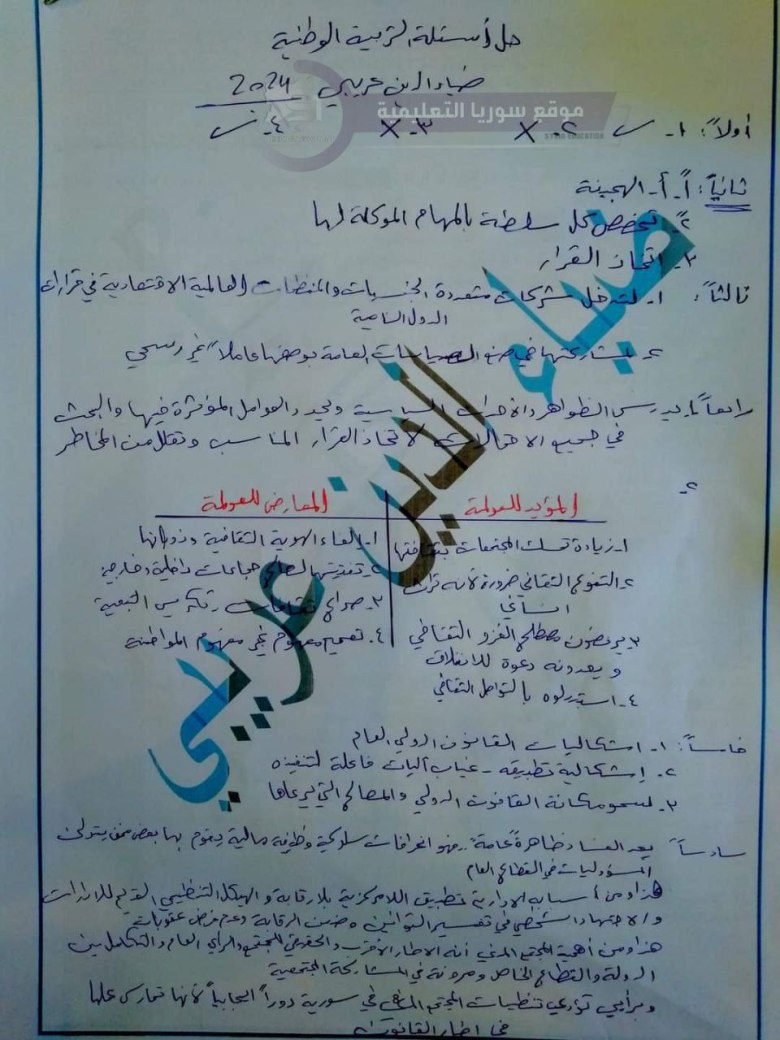 حل أسئلة التربية الوطنية
ضياء الدين عريبي 2024
موقع سوريا التعليمية
SYRIA EDUCATION
أولاً: ١- س ٢- X ٣- X ٤- س
ثانياً: أً- أ- الهجينة
٢ً- تخصص كل سلطة بالمهام الموكلة لها
٣- اتخاذ القرار
ثالثاً: ١- تدخل شركات متعددة الجنسيات والمنظمات العالمية الاقتصادية في قرارات
الدول النامية
٢- مشاركتها في صنع السياسات العامة بوصفها عاملاً غير رسمي
رابعاً: ١- يدرس الظواهر والأحداث السياسية ويحدد العوامل المؤثرة فيها والبحث
في جميع الاحتمالات لاتخاذ القرار المناسب وتقلل من المخاطر
٢-
المؤيد للعولمة المعارض للعولمة
١- زيادة تمسك المجتمعات بثقافتها
٢- التنوع الثقافي ضرورة لأنه تراث
إنساني
٣- يرفضون مصطلح الغزو الثقافي
ويعدونه دعوة للانغلاق
٤- استبدلوه بالتواصل الثقافي
١- إلغاء الهوية الثقافية وذوبانها
٢- لصالح جماعات داخلية وخارجية
٣- صراع ثقافات وتكريس التبعية
٤- تعميم مفهوم غير مفهوم المواطنة
خامساً: ١- إشكاليات القانون الدولي العام
٢- إشكالية تطبيقه - غياب آليات فاعلة لتنفيذه
٣- لسمو مكانة القانون الدولي والمصالح التي يرعاها
سادساً يعد الفساد ظاهرة عامة، فهو انحرافات سلوكية وظيفية مالية يقوم بها بعض ممن يتولون
المسؤوليات في القطاع العام
هذا ومن أسبابه الإدارية تطبيق اللامركزية بلا رقابة والهيكل التنظيمي القديم للإدارات
والاجتهاد الشخصي في تفسير القوانين وضعف الرقابة وعدم فرض عقوبات
هذا ومن أهمية المجتمع المدني أنه الإطار الأقرب والحقيقي للمجتمع والرأي العام والتكامل بين
الدولة والقطاع الخاص ومرونة في المشاركة المجتمعية
وبرأيي تؤدي تنظيمات المجتمع المدني في سورية دوراً إيجابياً لأنها تمارس عملها
في إطار القانون
ضياء الدين عريبي